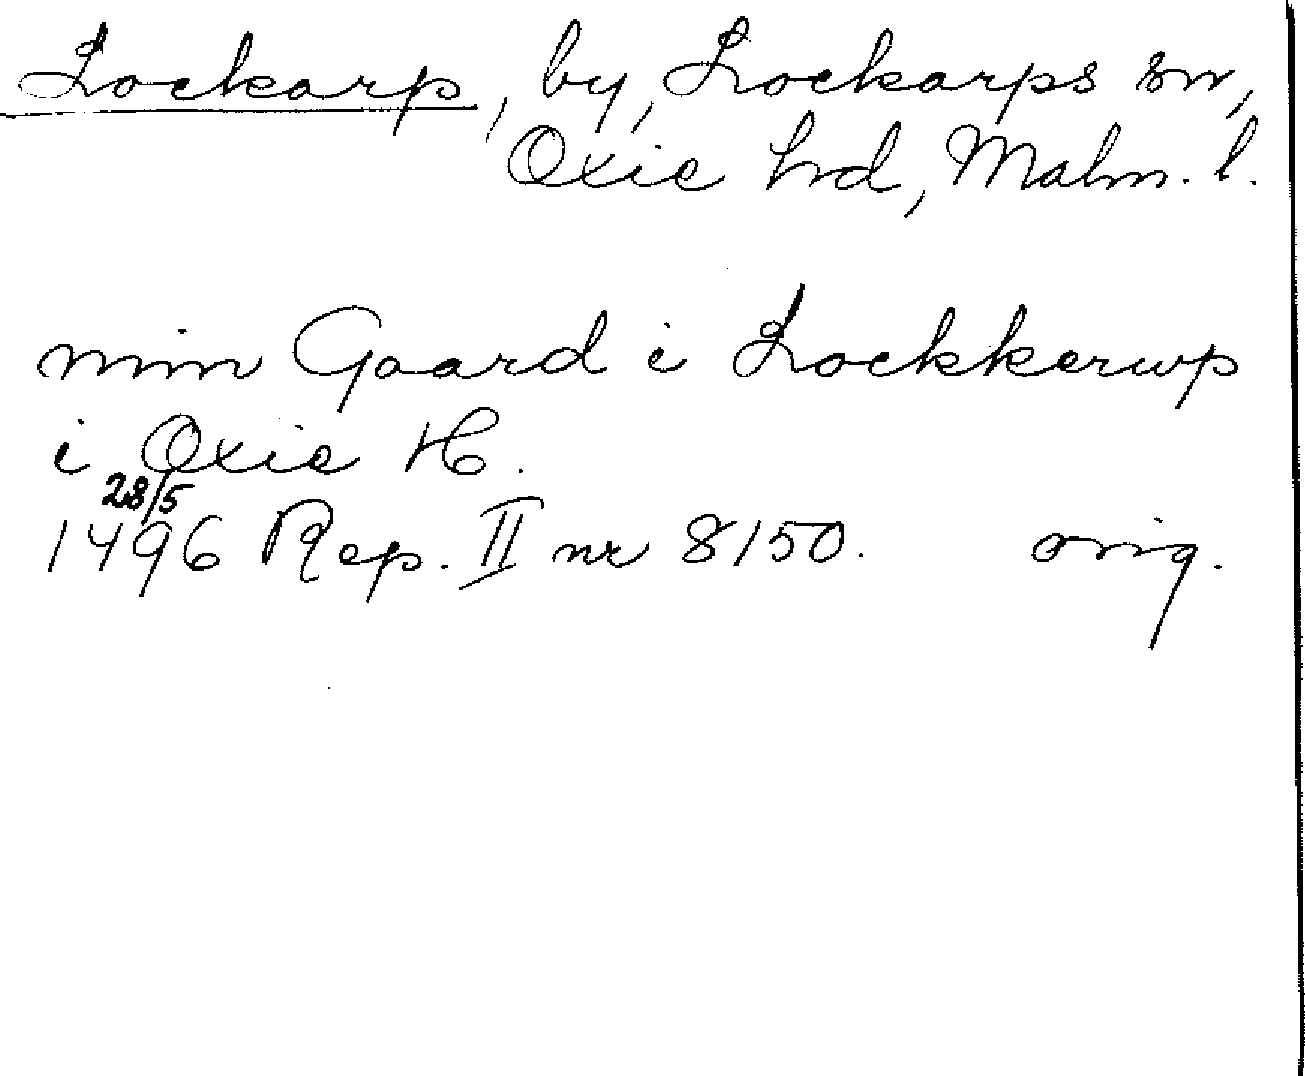 Lockarp, by, Lockarps sn,
Oxie hd, Malm. l.
min Gaard i Lockkerwp
i Oxie H.
28/5
1496 Rep. II nr 8150. orig.